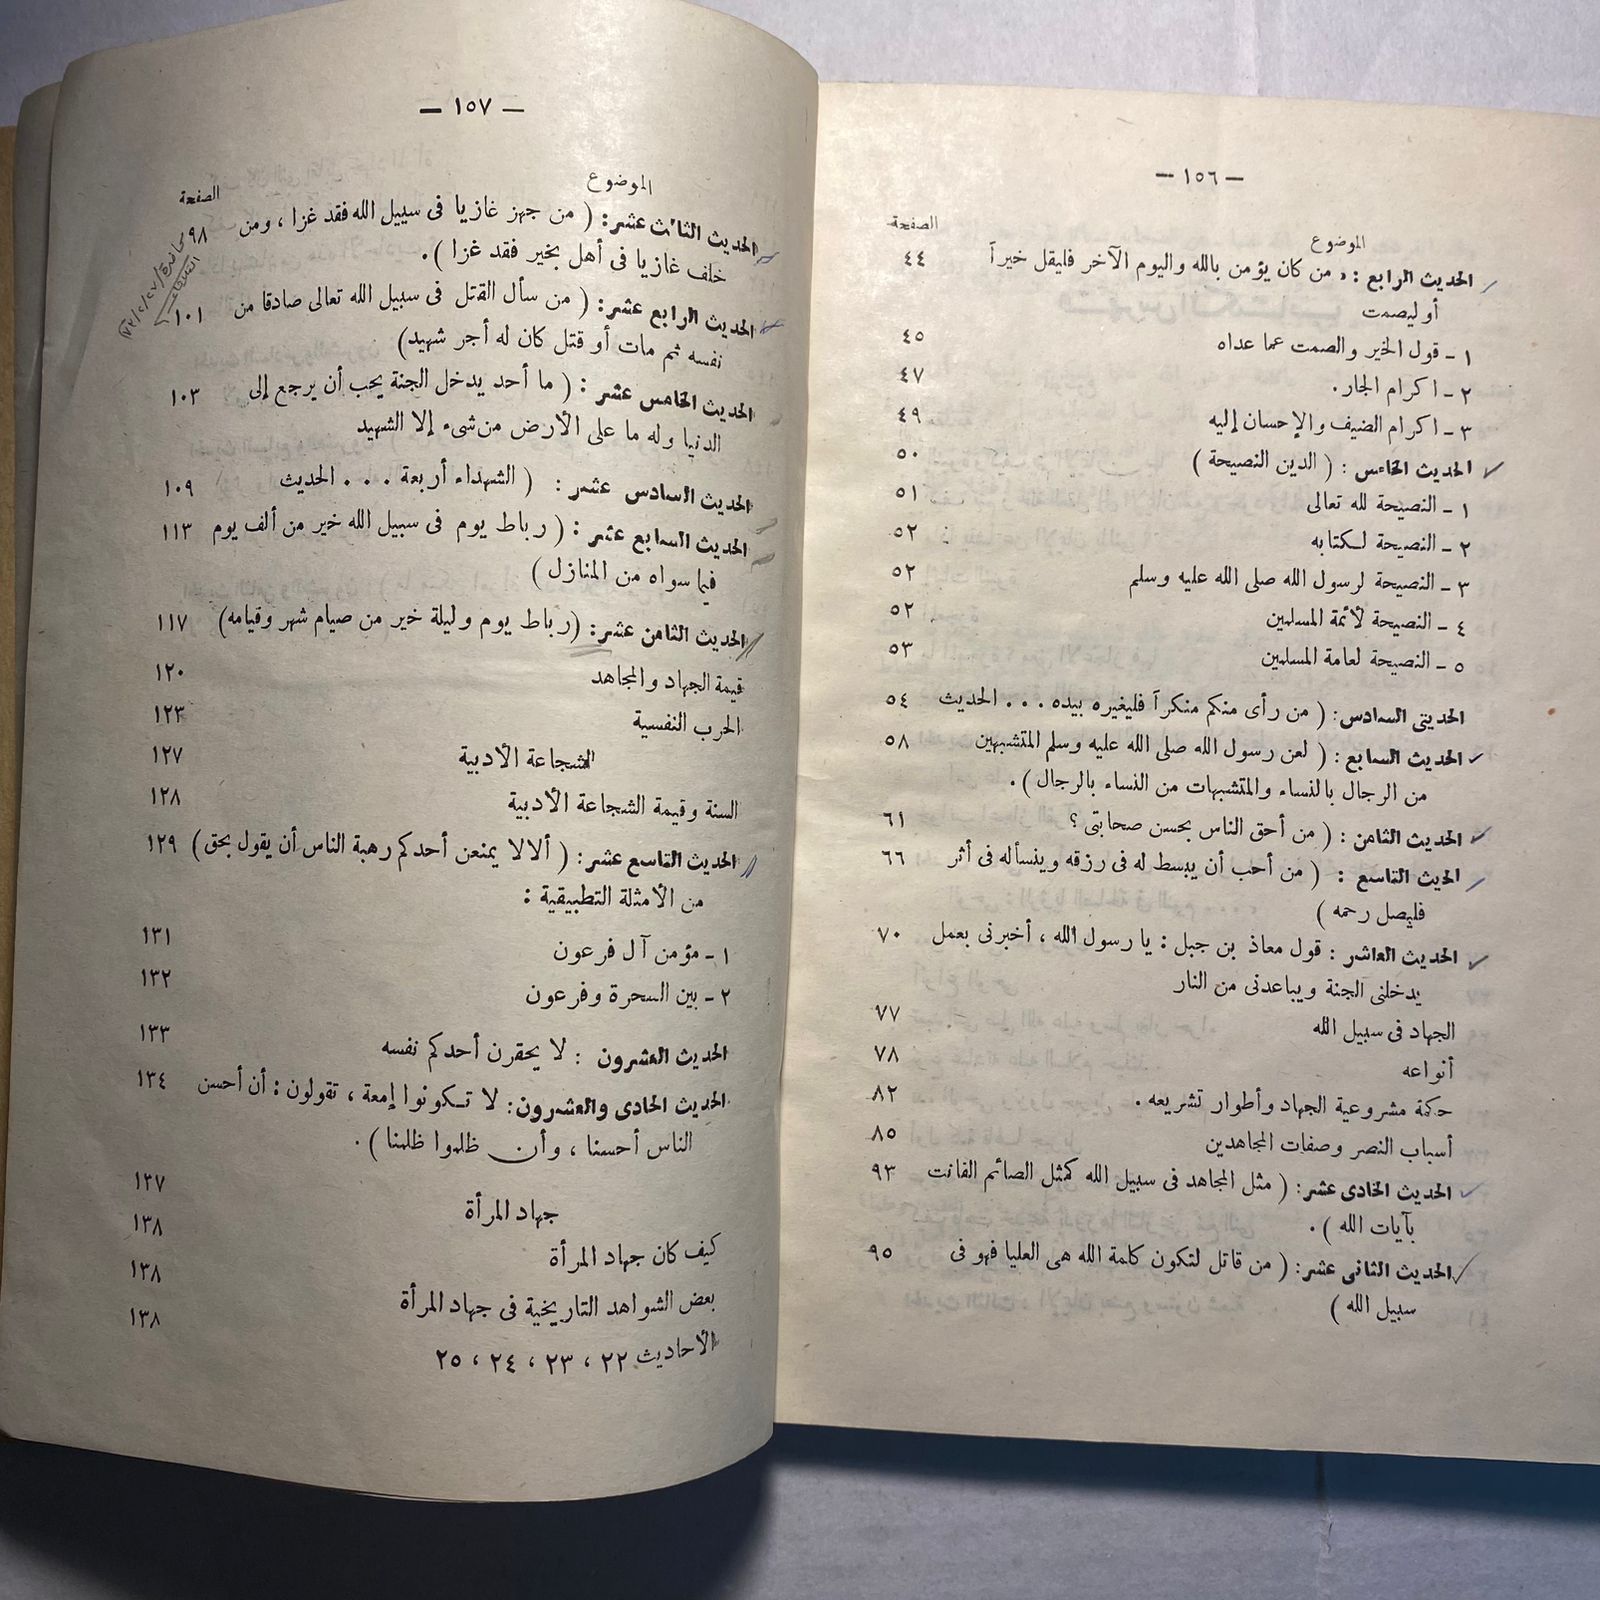 — ١٥٦ —
الموضوع الصفحة
الحديث الرابع : « من كان يؤمن بالله واليوم الآخر فليقل خيرآ ٤٤
أو ليصمت
١ - قول الخير والصمت عما عداه ٤٥
٢ - اكرام الجار . ٤٧
٣ - اكرام الضيف والإحسان إليه ٤٩
الحديث الخامس : ( الدين النصيحة ) ٥٠
١ - النصيحة لله تعالى ٥١
٢ - النصيحة لكتابه ٥٢
٣ - النصيحة لرسول الله صلى الله عليه وسلم ٥٢
٤ - النصيحة لأئمة المسلمين ٥٢
٥ - النصيحة لعامة المسلمين ٥٣
الحديث السادس : ( من رأى منكم منكرآ فليغيره بيده . . . الحديث ٥٤
الحديث السابع : ( لعن رسول الله صلى الله عليه وسلم المتشبهين ٥٨
من الرجال بالنساء والمتشبهات من النساء بالرجال ) .
الحديث الثامن : ( من أحق الناس بحسن صحابتى ؟ ٦١
الحديث التاسع : ( من أحب أن يبسط له فى رزقه وينسأله فى أثر ٦٦
فليصل رحمه )
الحديث العاشر : قول معاذ بن جبل : يا رسول الله ، أخبرنى بعمل ٧٠
يدخلنى الجنة ويباعدنى من النار
الجهاد فى سبيل الله ٧٧
أنواعه ٧٨
حكمة مشروعية الجهاد وأطوار تشريعه . ٨٢
أسباب النصر وصفات المجاهدين ٨٥
الحديث الحادى عشر : ( مثل المجاهد فى سبيل الله كمثل الصائم القانت ٩٣
بآيات الله ) .
الحديث الثانى عشر : ( من قاتل لتكون كلمة الله هى العليا فهو فى ٩٥
سبيل الله )
— ١٥٧ —
الموضوع الصفحة
الحديث الثالث عشر : ( من جهز غازيا فى سبيل الله فقد غزا ، ومن ٩٨
خلف غازيا فى أهل بخير فقد غزا ) .
الحديث الرابع عشر : ( من سأل القتل فى سبيل الله تعالى صادقا من ١٠١
نفسه ثم مات أو قتل كان له أجر شهيد )
الحديث الخامس عشر : ( ما أحد يدخل الجنة يحب أن يرجع إلى ١٠٣
الدنيا وله ما على الأرض من شىء إلا الشهيد
الحديث السادس عشر : ( الشهداء أربعة . . . الحديث ١٠٩
الحديث السابع عشر : ( رباط يوم فى سبيل الله خير من ألف يوم ١١٣
فيما سواه من المنازل )
الحديث الثامن عشر : ( رباط يوم وليلة خير من صيام شهر وقيامه ) ١١٧
قيمة الجهاد والمجاهد ١٢٠
الحرب النفسية ١٢٣
الشجاعة الأدبية ١٢٧
السنة وقيمة الشجاعة الأدبية ١٢٨
الحديث التاسع عشر : ( ألالا يمنعن أحدكم رهبة الناس أن يقول بحق ) ١٢٩
من الأمثلة التطبيقية :
١ - مؤمن آل فرعون ١٣١
٢ - بين السحرة وفرعون ١٣٢
الحديث العشرون : لا يحقرن أحدكم نفسه ١٣٣
الحديث الحادى والعشرون : لا تكونوا إمعة ، تقولون : أن أحسن ١٣٤
الناس أحسنا ، وأن ظلموا ظلمنا ) .
جهاد المرأة ١٣٧
كيف كان جهاد المرأة ١٣٨
بعض الشواهد التاريخية فى جهاد المرأة ١٣٨
الأحاديث ٢٢ ، ٢٣ ، ٢٤ ، ٢٥ ١٣٨